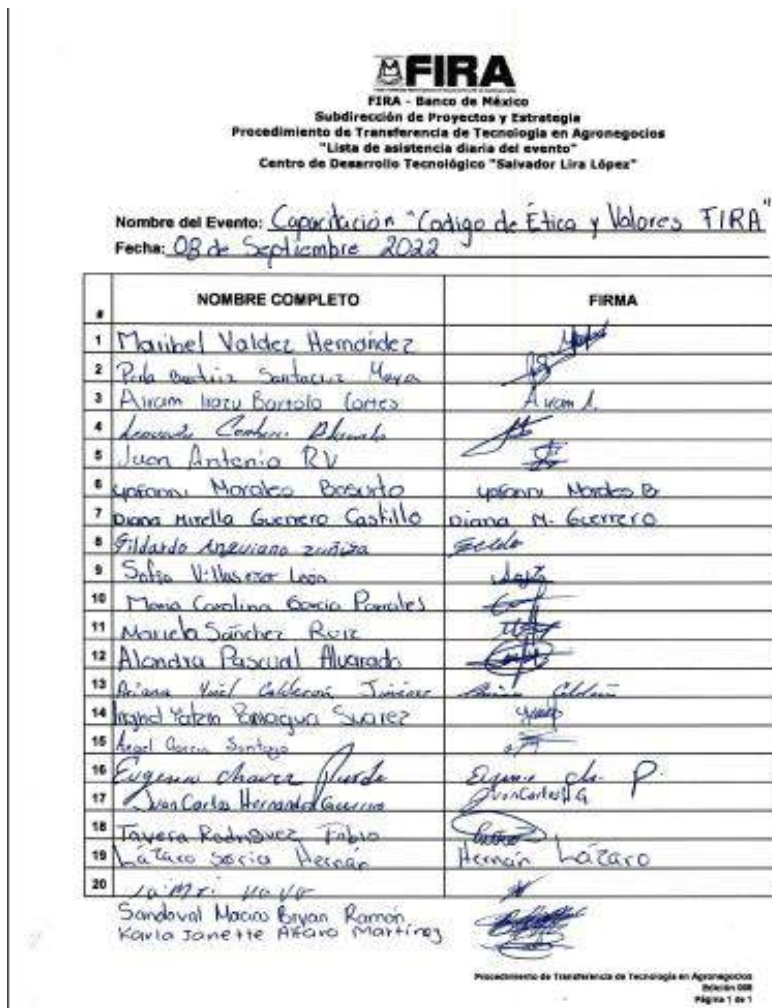 FIRA
FIRA - Banco de México
Subdirección de Proyectos y Estrategia
Procedimiento de Transferencia de Tecnología en Agronegocios
"Lista de asistencia diaria del evento"
Centro de Desarrollo Tecnológico "Salvador Lira López"
Nombre del Evento: Capacitación "Codigo de Ética y Valores FIRA"
Fecha: 08 de Septiembre 2022
# NOMBRE COMPLETO FIRMA
1 Maribel Valdez Hernández
2 Perla Beatriz Santacruz Moya
3 Airam Irazu Bartolo Cortes Airam
4
5 Juan Antonio RV
6 Morales Basurto Morales B
7 Diana Mirella Guerrero Castillo Diana M. Guerrero
8 Gildardo Anguiano zuñiga
9 Sofia Villaseñor León
10 Maria Carolina Garcia
11 Mariela Sánchez Ruiz
12 Alondra Pascual Alvarado
13 Ariana Calderón Jiménez
14 Ingrid Yatzin Suarez
15 Angel Garcia Santoyo
16 Eugenio Chavez Eugenio P.
17 Juan Carlos Hernandez Guerrero Juan Carlos H G
18 Tavera Rodriguez Fabio
19 Lázaro Soria Hernán Hernán Lázaro
20
Sandoval Macias Bryan Ramón
Karla Janette Alfaro Martínez
Procedimiento de Transferencia de Tecnología en Agronegocios
Edición 008
Página 1 de 1